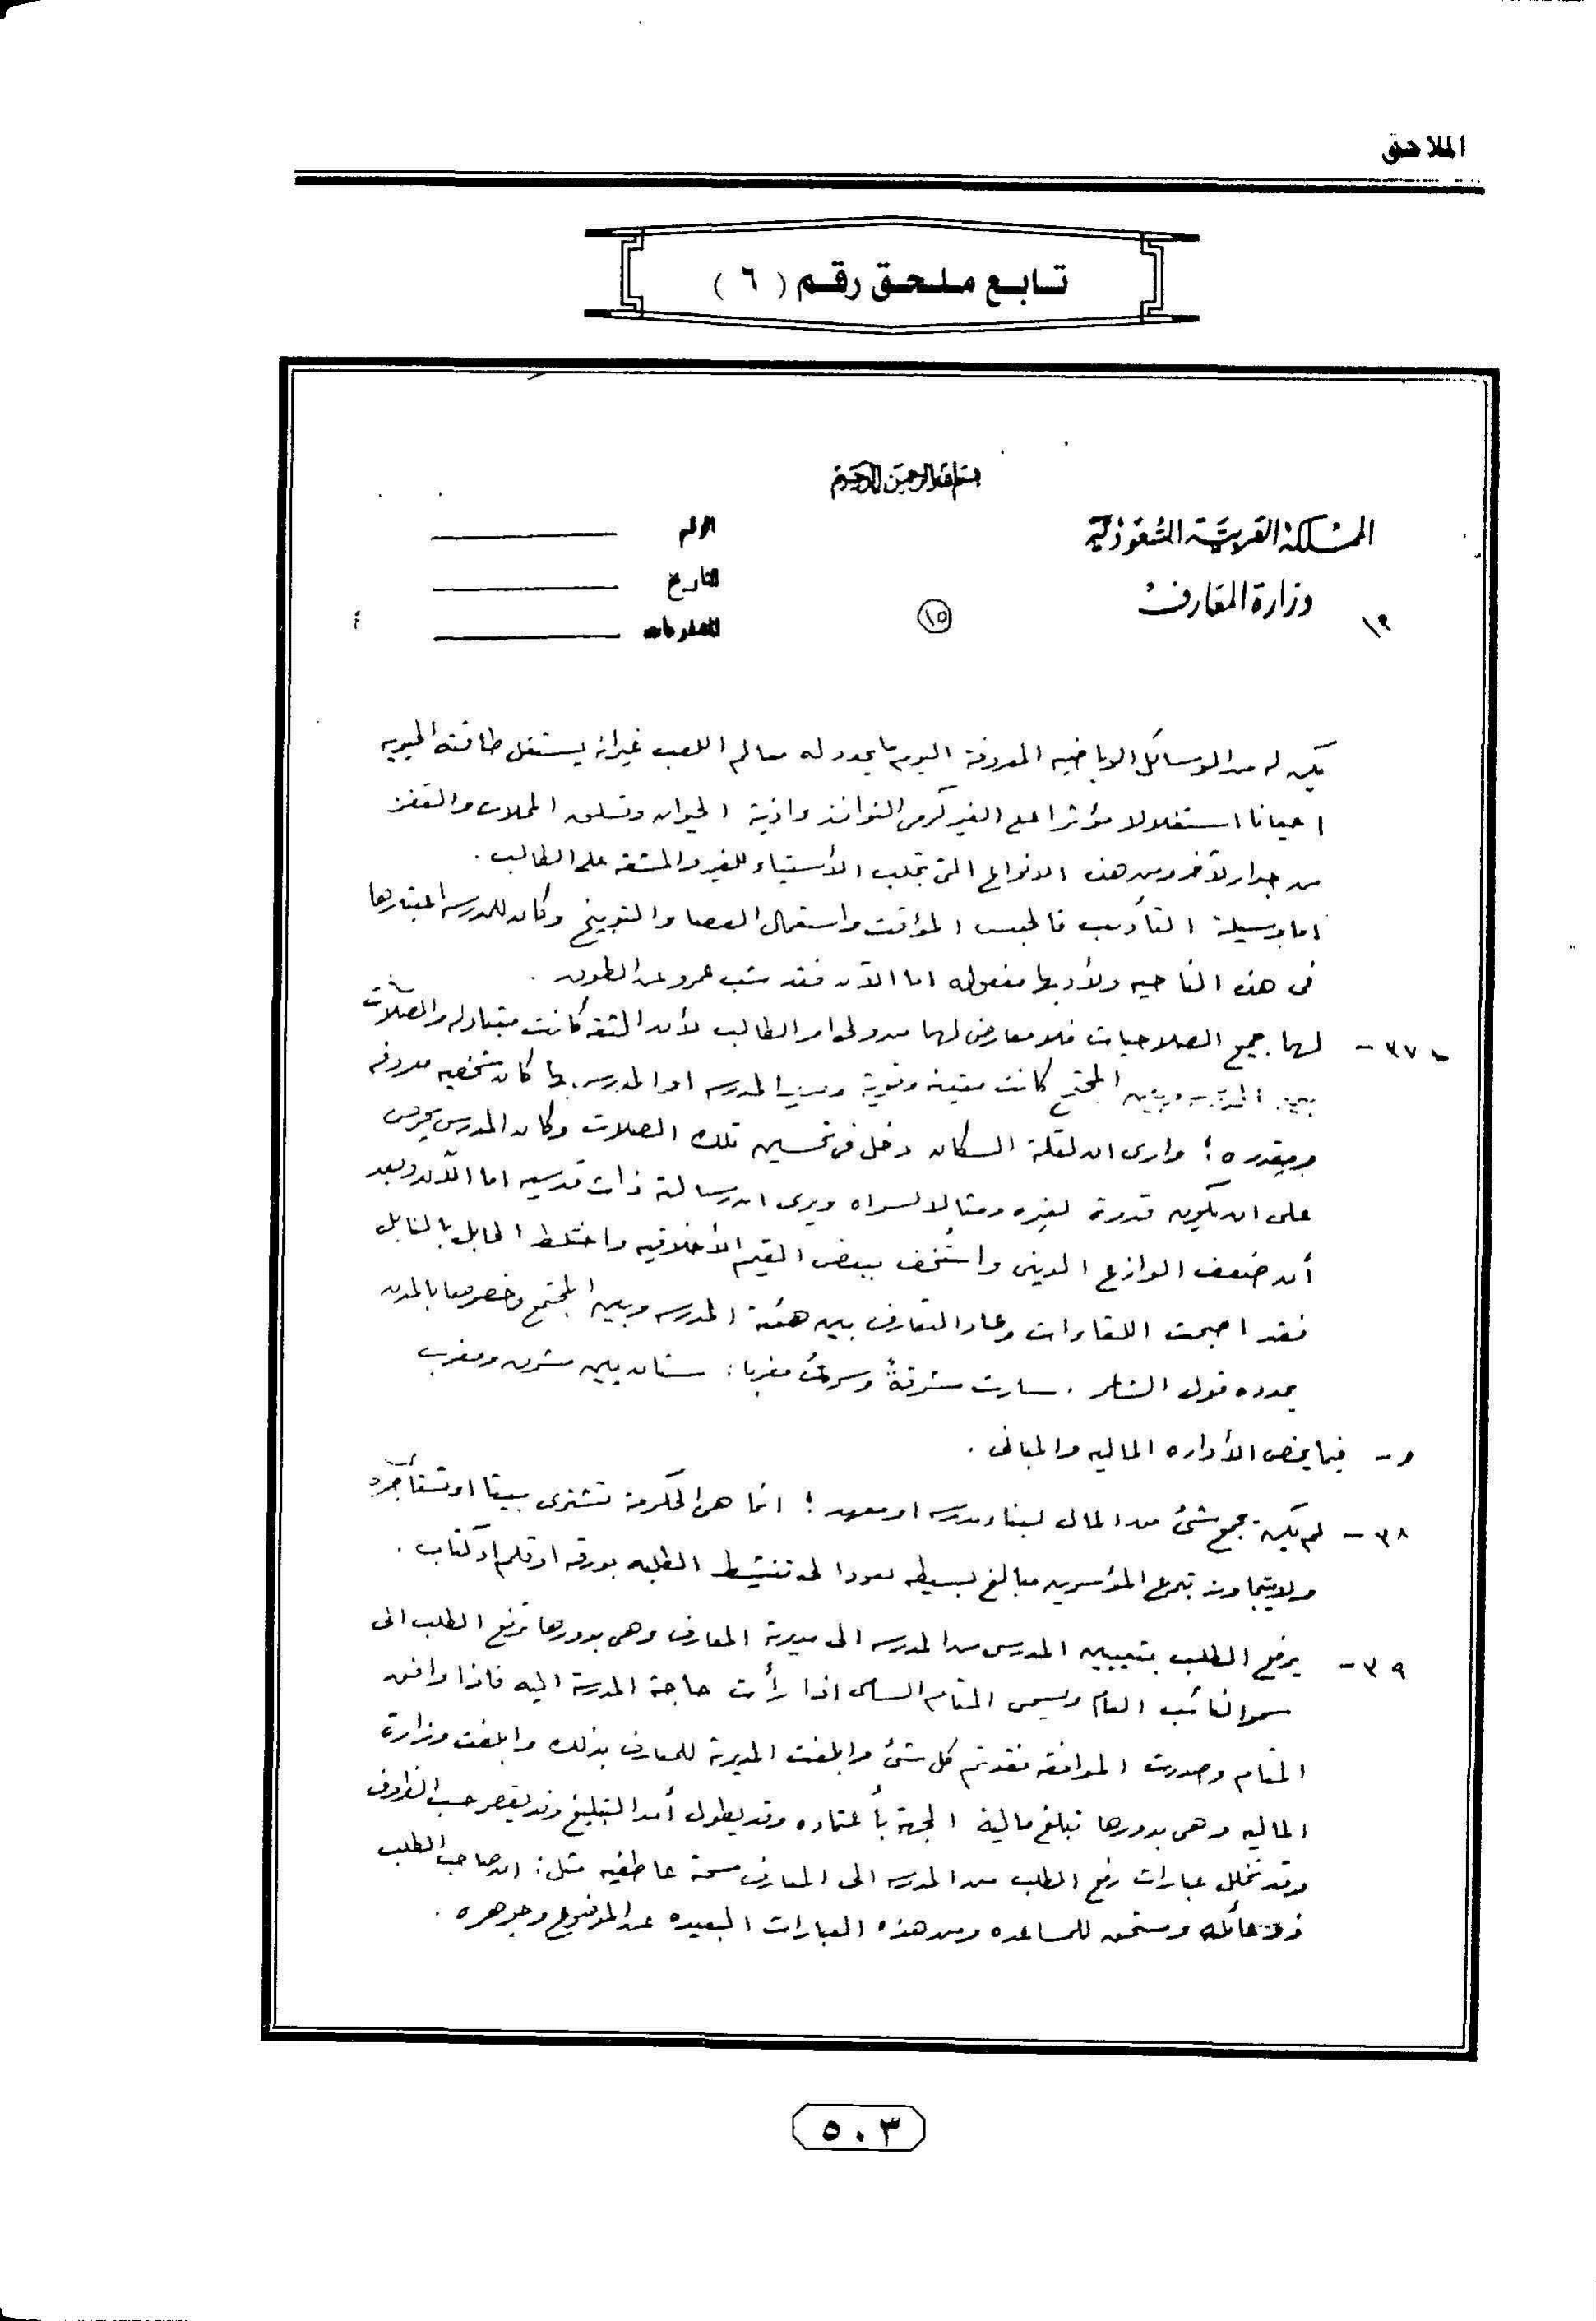 الملاحق
تابع ملحق رقم ( ٦ )
بسم الله الرحمن الرحيم
المملكة العربية السعودية
وزارة المعارف
الرقم
التاريخ
المشفوعات
١٥
يكن له من الوسائل الرياضيه المعروفة اليوم ما يحدد له معالم اللعب غير انه يستغل طاقته الحيويه
احيانا استغلالا مؤثرا على الغير كرمى النوافذ واذية الحيوان وتسلق المحلات والقفز
من جدار لآخر ومن هذه الانواع التى تجلب الأستياء للغير والمشقه على الطالب .
اما وسيلة التأديب فالحبس المؤقت واستعمال العصا والتوبيخ وكان للمدرسه اعتبارها
فى هذه الناحيه ولأدبها مفعوله اما الآن فقد شب عمرو عن الطوق .
٣٧ - لهما جميع الصلاحيات فلا معارض لهما من ولى امر الطالب لأن الثقه كانت متبادله والصلات
بين المدرسه وبين المجتمع كانت متينة وقوية ومدير المدرسه او المدرس بها كان شخصيه معروفه
ومقدره ؛ وارى ان لقلة السكان دخل فى تحسين تلك الصلات وكان المدرس يحرص
على ان يكون قدوة لغيره ومثالا لسواه ويرى ان رسالته ذات قدسيه اما الآن وبعد
أن ضعف الوازع الدينى واستُخف ببعض القيم الأخلاقيه واختلط الحابل بالنابل
فقد اصبحت اللقاءات وعاد التعارف بين هيئة المدرسه وبين المجتمع وخصوصا بالمدن
يحدده قول الشاعر . سارت مشرقةً وسرتُ مغربا : شتان بين مشرق ومغرب
و - فيما يخص الأداره الماليه والمبانى .
٣٨ - لم يكن يجمع شئ من المال لبناء مدرسه او معهد ؛ انما هى الحكومة تشترى بيتا او تستأجره
ولا يتجاوز تبرع المؤسرين مبالغ بسيطه تعود الى تنشيط الطلبه بورقه او قلم او كتاب .
٣٩ - يرفع الطلب بتعيين المدرس من المدرسه الى مديرية المعارف وهى بدورها ترفع الطلب الى
سمو النائب العام ويسمى المقام السامى اذا رأت حاجة المدرسة اليه فاذا وافق
المقام وصدرت الموافقه فقد تم كل شئ وابلغت المديرية للمعارف بذلك وابلغت وزارة
الماليه وهى بدورها تبلغ مالية الجهة بأعتماده وقد يطول أمد التبليغ وقد يقصر حسب الظروف
وقد تخلل عبارات رفع الطلب من المدرسه الى المعارف مسحة عاطفيه مثل : ان صاحب الطلب
ذو عائله ومستحق للمساعده ومن هذه العبارات البعيده عن الموضوع وجوهره .
٥٠٣